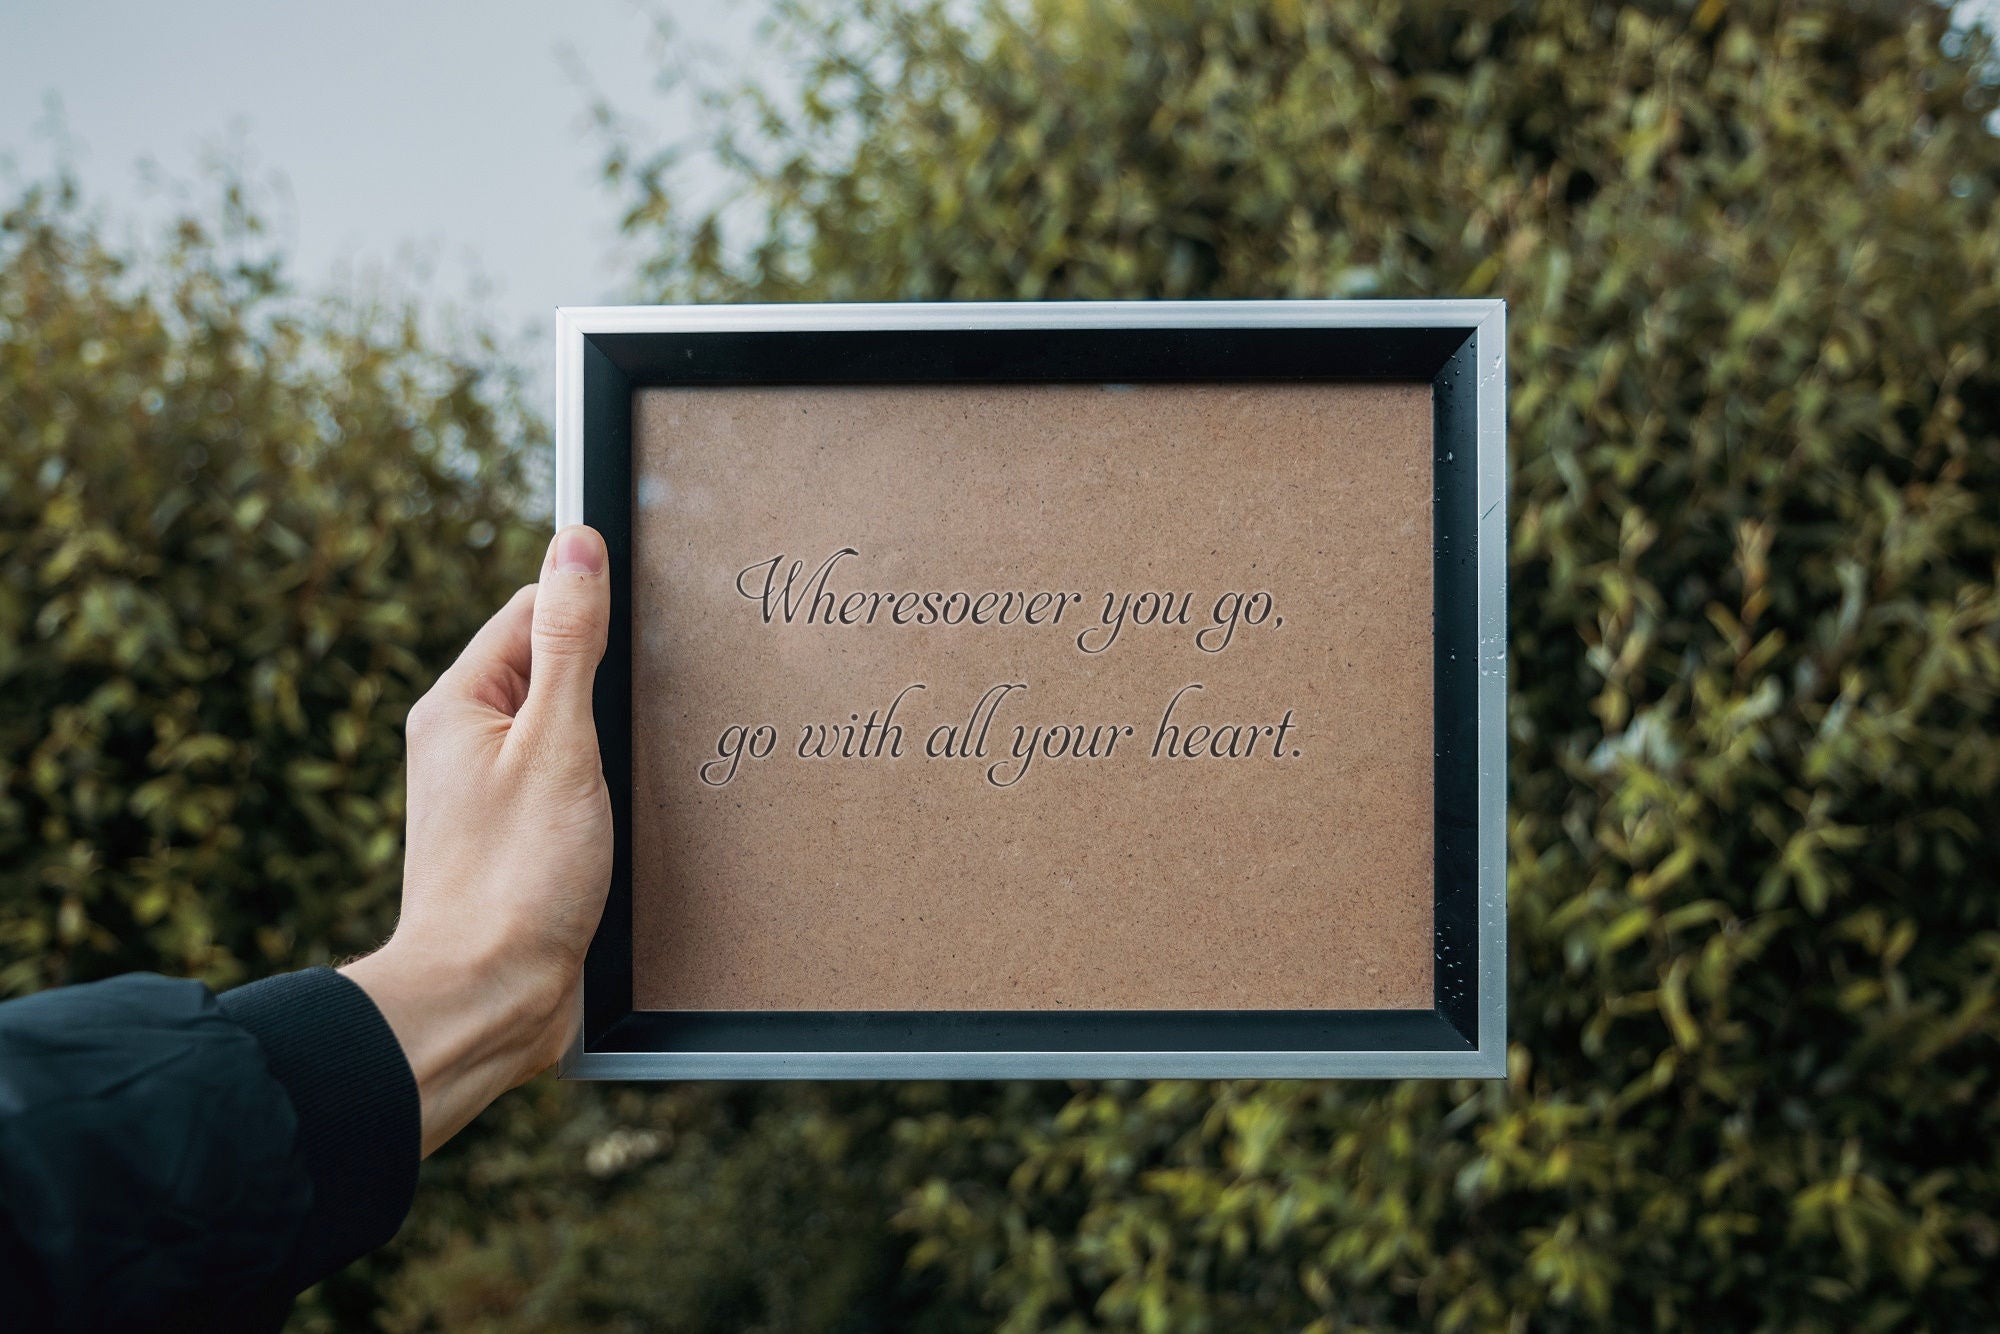 Wheresoever you go,
go with all your heart.